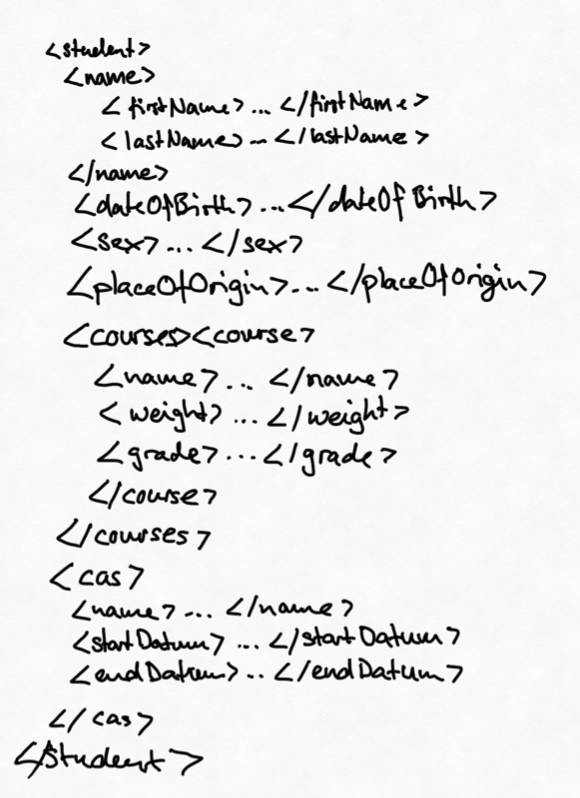 <student>
<name>
<firstName>... </firstName>
<lastName>... </lastName>
</name>
<dateOfBirth>...</dateOfBirth>
<sex>...</sex>
<placeOfOrigin>...</placeOfOrigin>
<courses><course>
<name>... </name>
<weight>...</weight>
<grade>...</grade>
</course>
</courses>
<cas>
<name>... </name>
<startDatum>...</startDatum>
<endDatum>..</endDatum>
</cas>
</student>